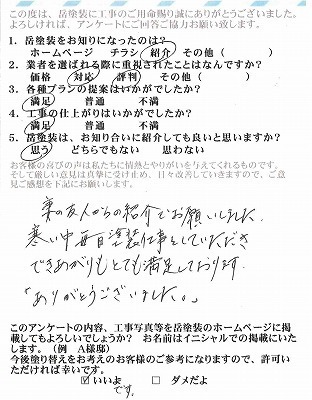 この度は、岳塗装に工事のご用命賜り誠にありがとうございました。
よろしければ、アンケートにご回答ご協力お願い致します。
1．岳塗装をお知りになったのは？
ホームページ　チラシ　紹介　その他（　　）
2．業者を選ばれる際に重視されたことはなんですか？
価格　対応　評判　その他（　　）
3．各種プランの提案はいかがでしたか？
満足　普通　不満
4．工事の仕上がりはいかがでしたか？
満足　普通　不満
5．岳塗装は、お知り合いに紹介しても良いと思いますか？
思う　どちらでもない　思わない
お客様の喜びの声は私たちに情熱とやりがいを与えてくれるものです。
そして厳しい意見は真摯に受け止め、日々改善していきますので、ご意
見ご感想を下記にお願いします。
妻の友人からの紹介でお願いしました。
寒い中毎日塗装仕事をしていただき
できあがりもとても満足しております.
「ありがとうございました。」
このアンケートの内容、工事写真等を岳塗装のホームページに掲
載してもよろしいでしょうか？　お名前はイニシャルでの掲載にいた
します。（例　A様邸）
今後塗り替えをお考えのお客様のご参考になりますので、許可い
ただければ幸いです。
☑ いいよ　□ ダメだよ
です。